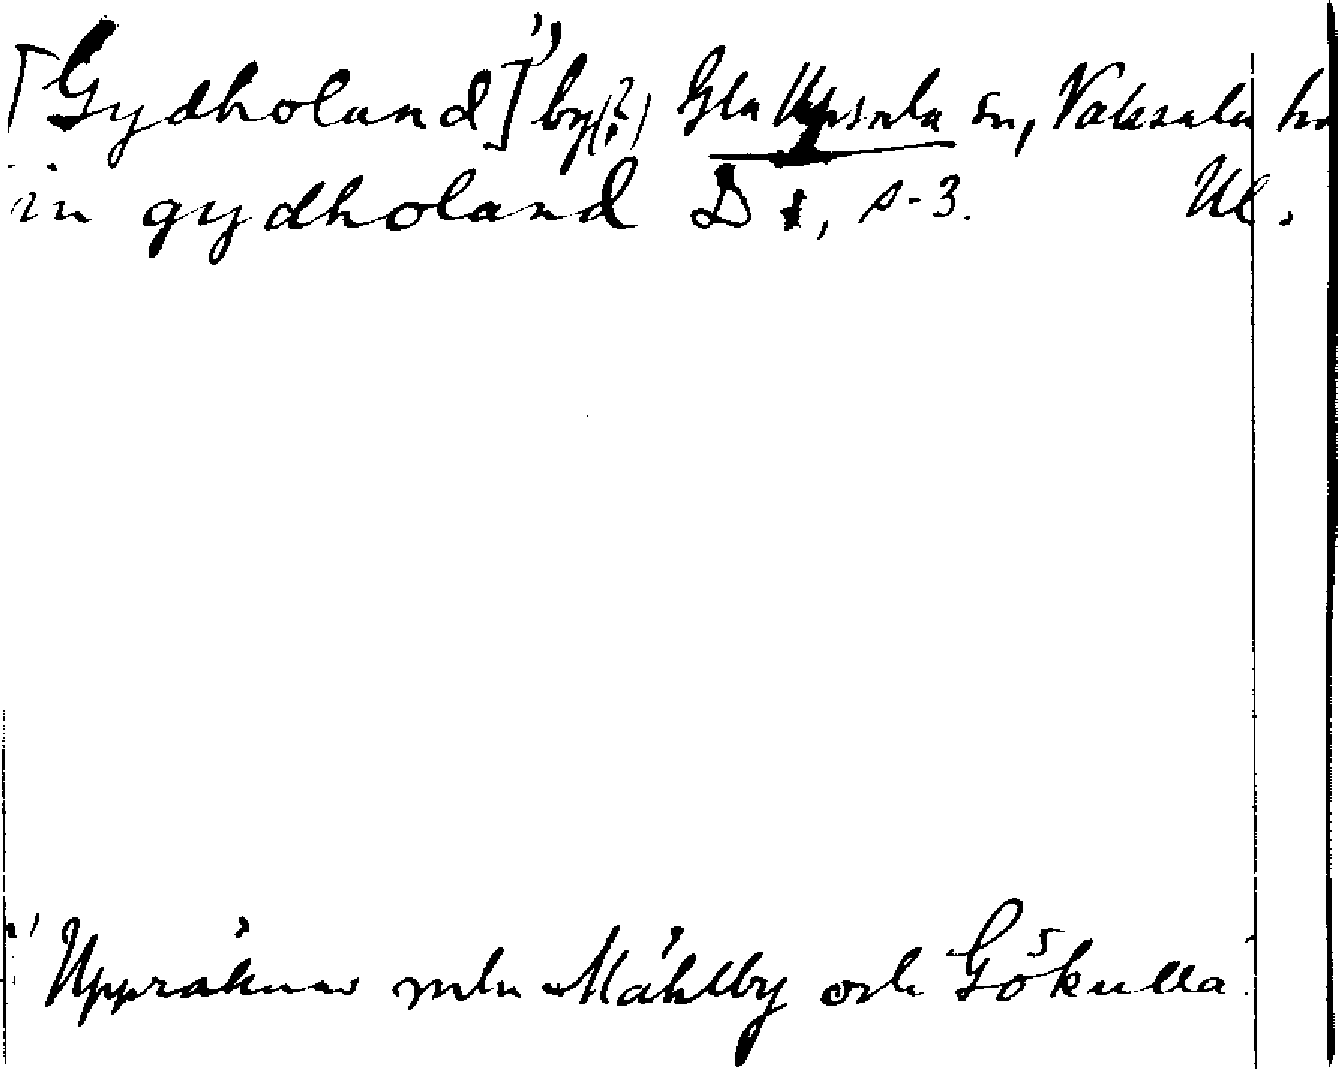 [Gydholand]¹⁾ by(?) Gla Uppsala sn, Vaksala hd
in gydholand D 1, s. 3. Ul.
¹⁾ Uppräknas mln Måhlby och Gökulla